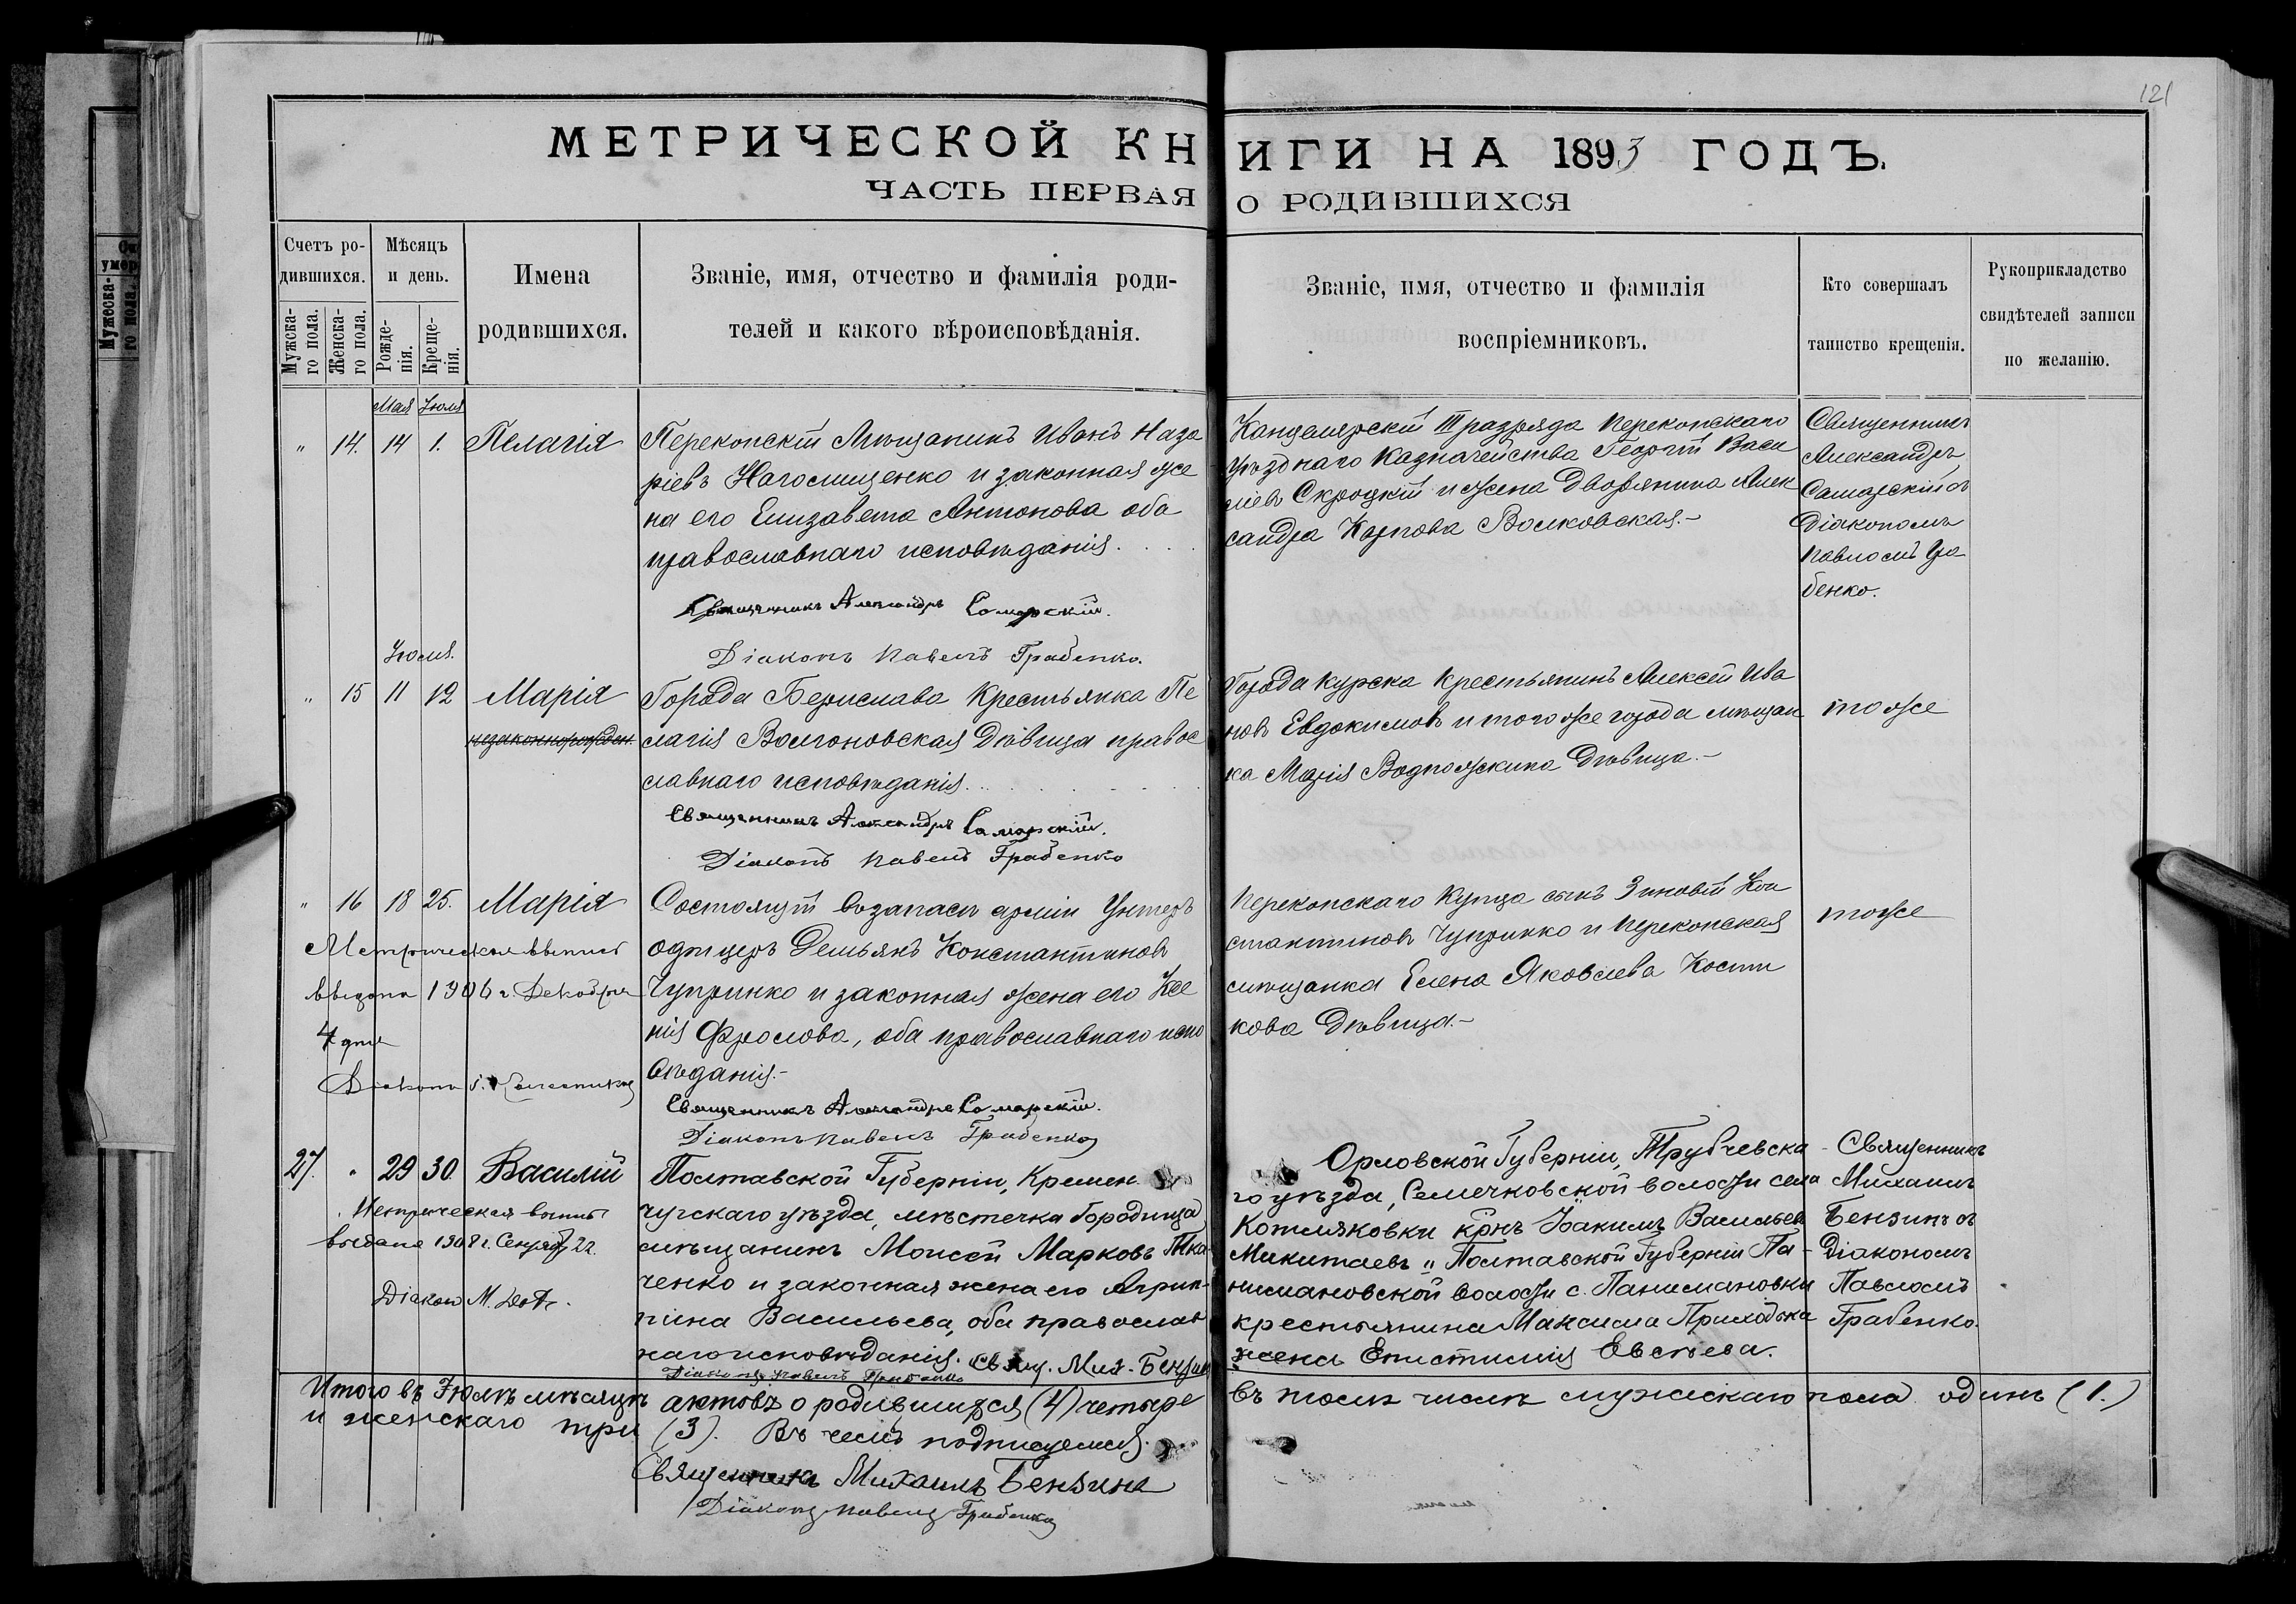 121
МЕТРИЧЕСКОЙ КНИГИ НА 1893 ГОДЪ.
ЧАСТЬ ПЕРВАЯ О РОДИВШИХСЯ
Счетъ ро-
дившихся.
Мужска-
го пола.
Женска-
го пола.
Мѣсяцъ
и день.
Рожде-
нія.
Креще-
нія.
Имена
родившихся.
Званіе, имя, отчество и фамилія роди-
телей и какого вѣроисповѣданія.
Званіе, имя, отчество и фамилія
воспріемниковъ.
Кто совершалъ
таинство крещенія.
Рукоприкладство
свидѣтелей записи
по желанію.
Мая Іюля
" 14. 14 1. Пелагія
Перекопскій Мѣщанинъ Иванъ Наза
ріевъ Нагомищенко и законная же
на его Елизавета Антонова оба
православнаго исповѣданія.
Священникъ Александръ Самарскій.
Діаконъ Павелъ Грабенко.
Канцелярскій III разряда Перекопскаго
Уѣзднаго Казначейства Георгій Васи
ліевъ Скроцкій и жена дворянина Алек
сандра Карпова Волковская.-
Священникъ
Александръ
Самарскій съ
Діакономъ
Павломъ Гра
бенко.
Іюля.
" 15 11 12 Марія
незаконнорожден.
Города Берислава Крестьянка Пе
лагія Волгоновская Дѣвица правос
лавнаго исповѣданія.
Священникъ Александръ Самарскій.
Діаконъ Павелъ Грабенко
Города Курска Крестьянинъ Алексѣй Ива
новъ Евдокимовъ и того же города мѣщан
ка Марія Дѣвица.-
тоже
" 16 18 25. Марія
Метрическая выпись
выдана 1906 г. Декабря
4 дня
Діаконъ
Состоящій въ запасѣ арміи Унтеръ
офицеръ Демьянъ Константиновъ
Чупринко и законная жена его Ксе
нія Фролова, оба православнаго испо
вѣданія.-
Священникъ Александръ Самарскій.
Діаконъ Павелъ Грабенко
Перекопскаго Купца сынъ Зиновій Кон
стантиновъ Чупринко и Перекопская
мѣщанка Елена Яковлева Кости
кова Дѣвица.-
тоже
27. " 29 30. Василій
Метрическая выпись
выдана 1908 г. Сентяб. 22.
Діаконъ М.
Полтавской Губерніи, Кремен
чугскаго уѣзда, мѣстечка Городища
мѣщанинъ Моисей Марковъ Тка-
ченко и законная жена его Агрип-
пина Васильева, оба православ
наго исповѣданія. Свящ. Мих. Бензинъ
Діаконъ Павелъ Грабенко
Орловской Губерніи, Трубчевска-
го уѣзда, Семечковской волости села
Котляковки крнъ Іоакимъ Васильевъ
Микитаевъ и Полтавской Губерніи Па-
нимановской волости с. Панимановки
крестьянина Максима Приходька
жена Епистимія Евсѣева.
Священникъ
Михаилъ
Бензинъ съ
Діакономъ
Павломъ
Грабенко.
Итого въ Іюлѣ мѣсяцѣ актовъ о родившихся (4) четыре въ томъ числѣ мужскаго пола одинъ (1.)
и женскаго три (3). Въ чемъ подписуемся.
Священникъ Михаилъ Бензинъ
Діаконъ Павелъ Грабенко